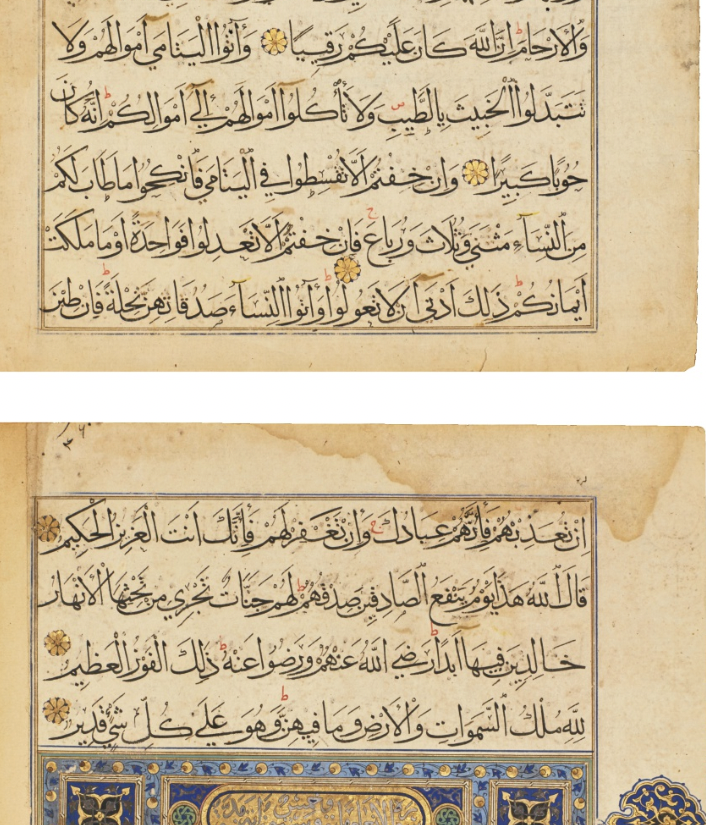 وَالْأَرْحَامَ إِنَّ اللَّهَ كَانَ عَلَيْكُمْ رَقِيبًا وَآتُوا الْيَتَامَى أَمْوَالَهُمْ وَلَا
تَتَبَدَّلُوا الْخَبِيثَ بِالطَّيِّبِ وَلَا تَأْكُلُوا أَمْوَالَهُمْ إِلَى أَمْوَالِكُمْ إِنَّهُ كَانَ
حُوبًا كَبِيرًا وَإِنْ خِفْتُمْ أَلَّا تُقْسِطُوا فِي الْيَتَامَى فَانْكِحُوا مَا طَابَ لَكُمْ
مِنَ النِّسَاءِ مَثْنَى وَثُلَاثَ وَرُبَاعَ فَإِنْ خِفْتُمْ أَلَّا تَعْدِلُوا فَوَاحِدَةً أَوْ مَا مَلَكَتْ
أَيْمَانُكُمْ ذَلِكَ أَدْنَى أَنْ لَا تَعُولُوا وَآتُوا النِّسَاءَ صَدُقَاتِهِنَّ نِحْلَةً فَإِنْ طِبْنَ
إِنْ تُعَذِّبْهُمْ فَإِنَّهُمْ عِبَادُكَ وَإِنْ تَغْفِرْ لَهُمْ فَإِنَّكَ أَنْتَ الْعَزِيزُ الْحَكِيمُ
قَالَ اللَّهُ هَذَا يَوْمُ يَنْفَعُ الصَّادِقِينَ صِدْقُهُمْ لَهُمْ جَنَّاتٌ تَجْرِي مِنْ تَحْتِهَا الْأَنْهَارُ
خَالِدِينَ فِيهَا أَبَدًا رَضِيَ اللَّهُ عَنْهُمْ وَرَضُوا عَنْهُ ذَلِكَ الْفَوْزُ الْعَظِيمُ
لِلَّهِ مُلْكُ السَّمَوَاتِ وَالْأَرْضِ وَمَا فِيهِنَّ وَهُوَ عَلَى كُلِّ شَيْءٍ قَدِيرٌ